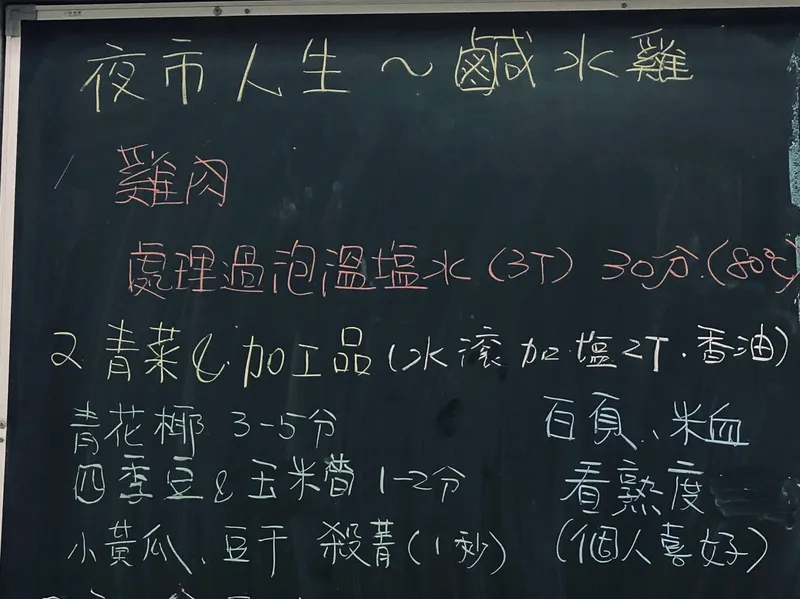 夜市人生~鹹水雞
1 雞肉
處理過泡溫塩水(3T) 30分.(80℃)
2.青菜&加工品(水滾加塩2T.香油)
青花椰 3-5分
四季豆&玉米筍 1-2分
小黃瓜、豆干 殺菁(1秒)
百頁、米血
看熟度
(個人喜好)